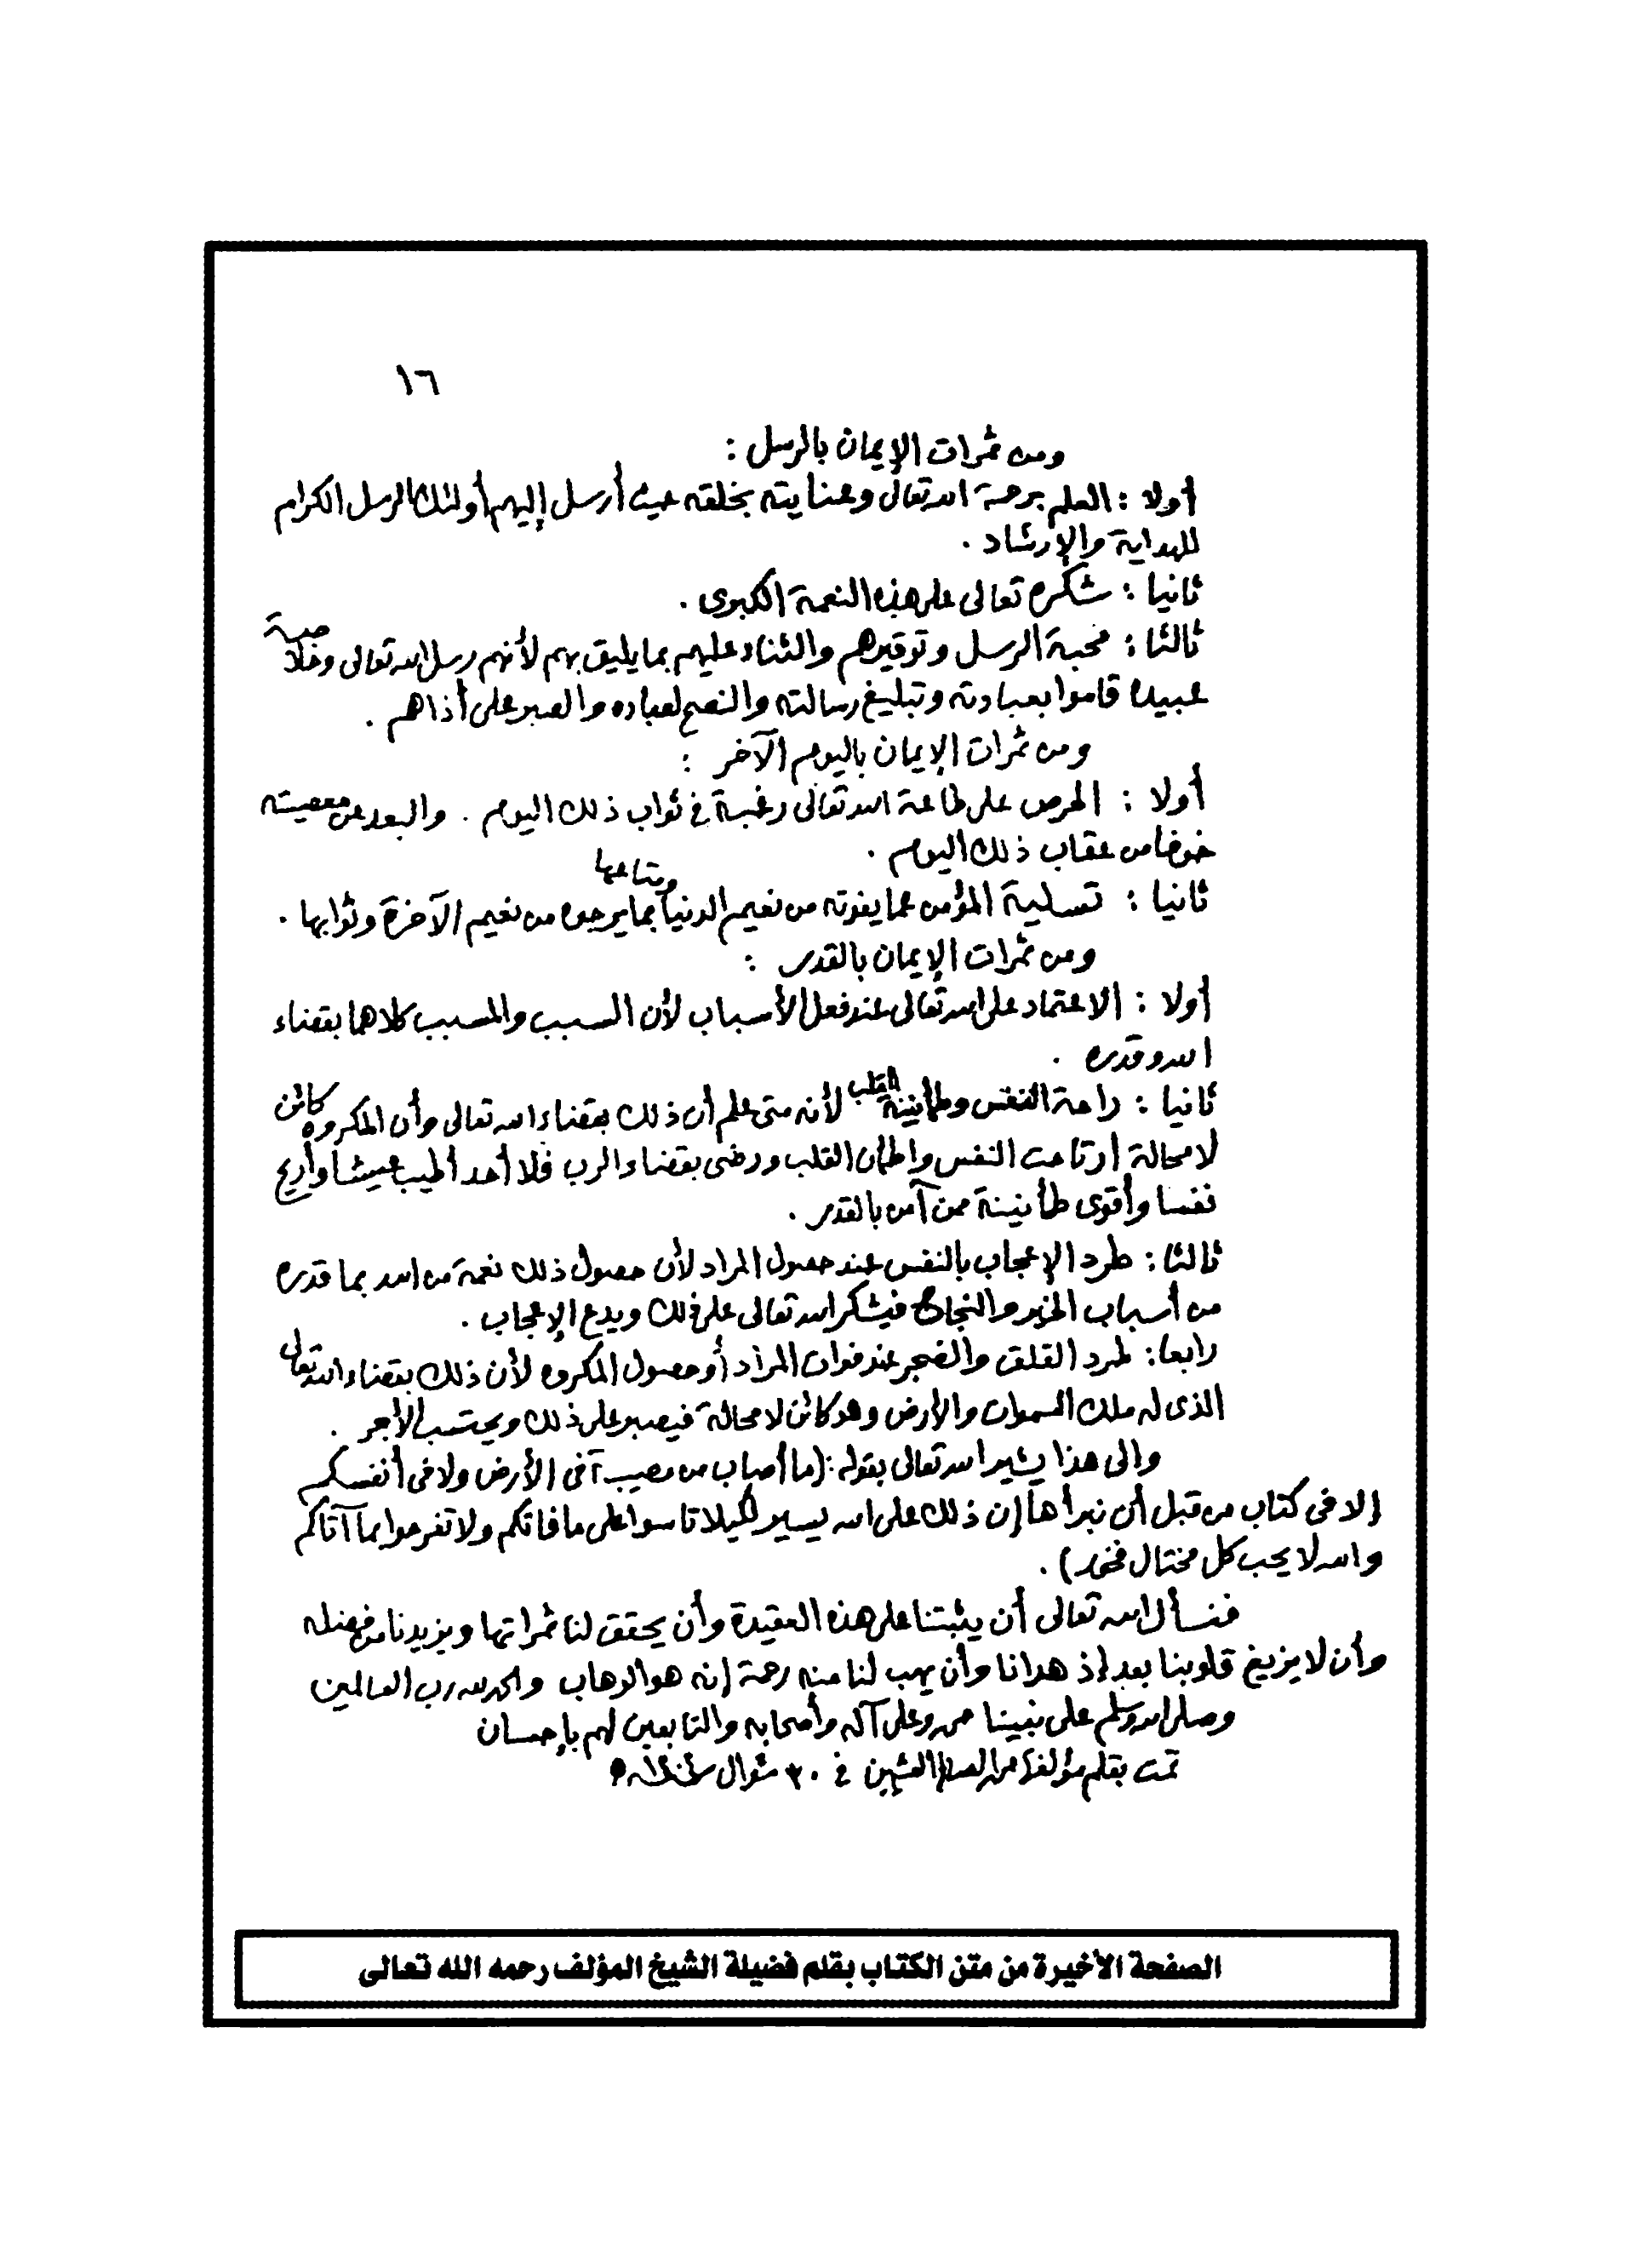 ١٦
ومن ثمرات الإيمان بالرسل :
أولا : العلم برحمة الله تعالى وعنايته بخلقه حيث أرسل إليهم أولئك الرسل الكرام
للهداية والإرشاد .
ثانيا : شكره تعالى على هذه النعمة الكبرى .
ثالثا : محبة الرسل وتوقيرهم والثناء عليهم بما يليق بهم لأنهم رسل الله تعالى وخلاصة
عبيده قاموا بعبادته وتبليغ رسالته والنصح لعباده والصبر على أذاهم .
ومن ثمرات الإيمان باليوم الآخر :
أولا : الحرص على طاعة الله تعالى رغبة في ثواب ذلك اليوم . والبعد عن معصيته
خوفا من عقاب ذلك اليوم .
ثانيا : تسلية المؤمن عما يفوته من نعيم الدنيا ومتاعها بما يرجوه من نعيم الآخرة وثوابها .
ومن ثمرات الإيمان بالقدر :
أولا : الاعتماد على الله تعالى عند فعل الأسباب لأن السبب والمسبب كلاهما بقضاء
الله وقدره .
ثانيا : راحة النفس وطمأنينة القلب لأنه متى علم أن ذلك بقضاء الله تعالى وأن المكروه كائن
لا محالة ارتاحت النفس واطمأن القلب ورضي بقضاء الرب فلا أحد أطيب عيشا وأريح
نفسا وأقوى طمأنينة ممن آمن بالقدر .
ثالثا : طرد الإعجاب بالنفس عند حصول المراد لأن حصول ذلك نعمة من الله بما قدره
من أسباب الخير والنجاح فيشكر الله تعالى على ذلك ويدع الإعجاب .
رابعا : طرد القلق والضجر عند فوات المراد أو حصول المكروه لأن ذلك بقضاء الله تعالى
الذى له ملك السموات والأرض وهو كائن لا محالة فيصبر على ذلك ويحتسب الأجر .
والى هذا يشير الله تعالى بقوله : (ما أصاب من مصيبة فى الأرض ولا فى أنفسكم
إلا فى كتاب من قبل أن نبرأها إن ذلك على الله يسير لكيلا تأسوا على ما فاتكم ولا تفرحوا بما آتاكم
والله لا يحب كل مختال فخور) .
فنسأل الله تعالى أن يثبتنا على هذه العقيدة وأن يحقق لنا ثمراتها ويزيدنا من فضله
وأن لا يزيغ قلوبنا بعد إذ هدانا وأن يهب لنا منه رحمة إنه هو الوهاب والحمد لله رب العالمين
وصلى الله وسلم على نبينا محمد وعلى آله وأصحابه والتابعين لهم بإحسان
تمت بقلم مؤلفها محمد الصالح العثيمين في ٣٠ شوال سنة
الصفحة الأخيرة من متن الكتاب بقلم فضيلة الشيخ المؤلف رحمه الله تعالى